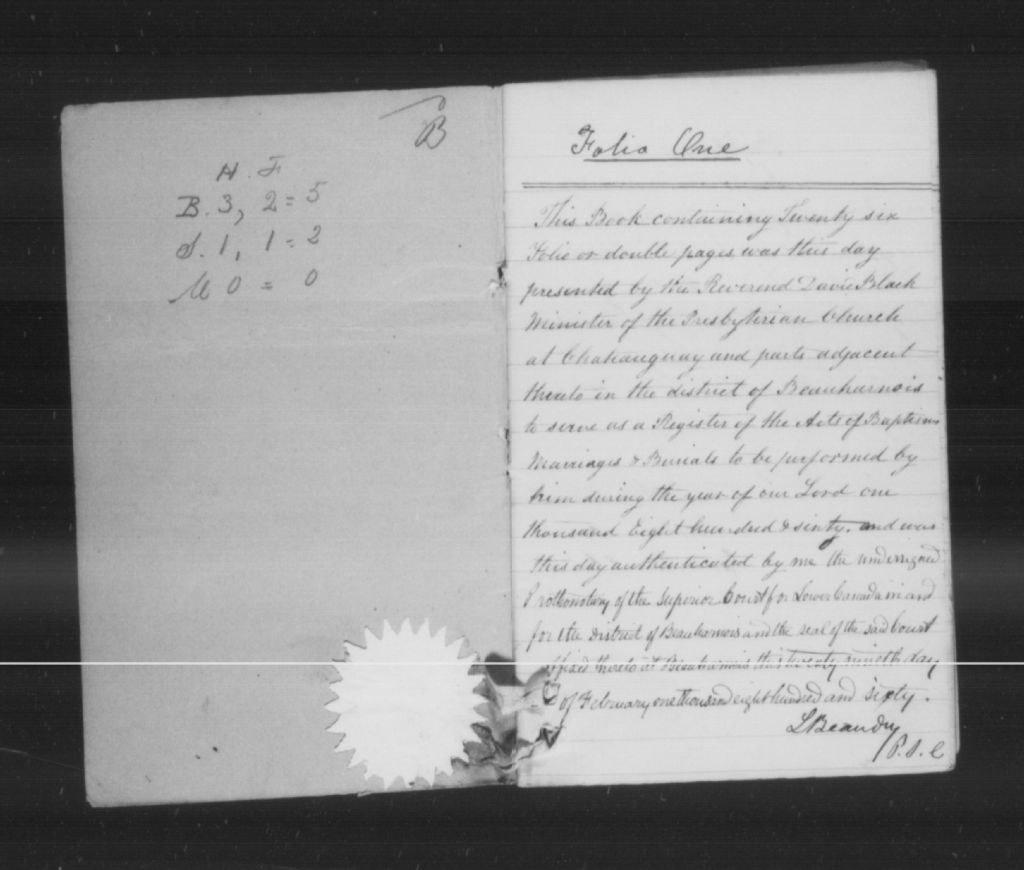 B
H. F
B. 3, 2 = 5
S. 1, 1 = 2
M 0 = 0
Folio One
This Book containing Twenty six
Folio or double pages was this day
presented by the Reverend David Black
Minister of the Presbyterian Church
at Chahauguay and parts adjacent
thereto in the district of Beauharnois
to serve as a Register of the Acts of Baptism
Marriages & Burials to be performed by
him during the year of our Lord one
thousand Eight hundred & sixty. and was
this day authenticated by me the undersigned
Prothonotary of the Superior Court for Lower Canada in and
for the District of Beauharnois and the seal of the said Court
affixed thereto at Beauharnois this twenty nineth day
of February one thousand eight hundred and sixty.
L Beaudry
P. S. C